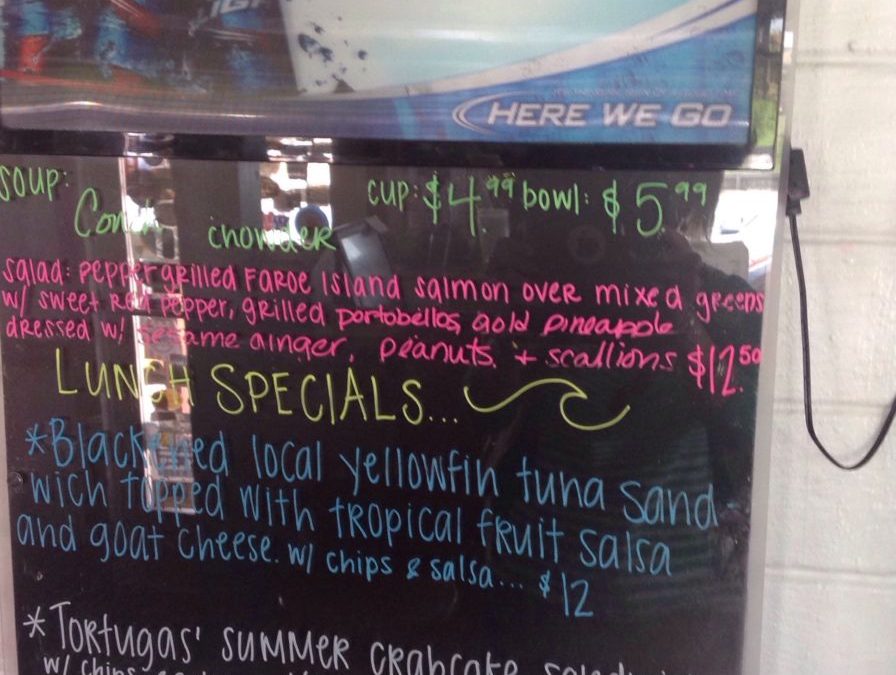 HERE WE GO
SOUP:
cup: $4.99 bowl: $5.99
Conch chowder
salad: pepper grilled Faroe Island salmon over mixed greens
w/ sweet red pepper, grilled portobellos, gold pineapple
dressed w/ sesame ginger, peanuts, + scallions $12.50
LUNCH SPECIALS...
*Blackened local yellowfin tuna sand
wich topped with tropical fruit salsa
and goat cheese. w/ chips & salsa... $12
*Tortugas' summer crabcake
w/ chips